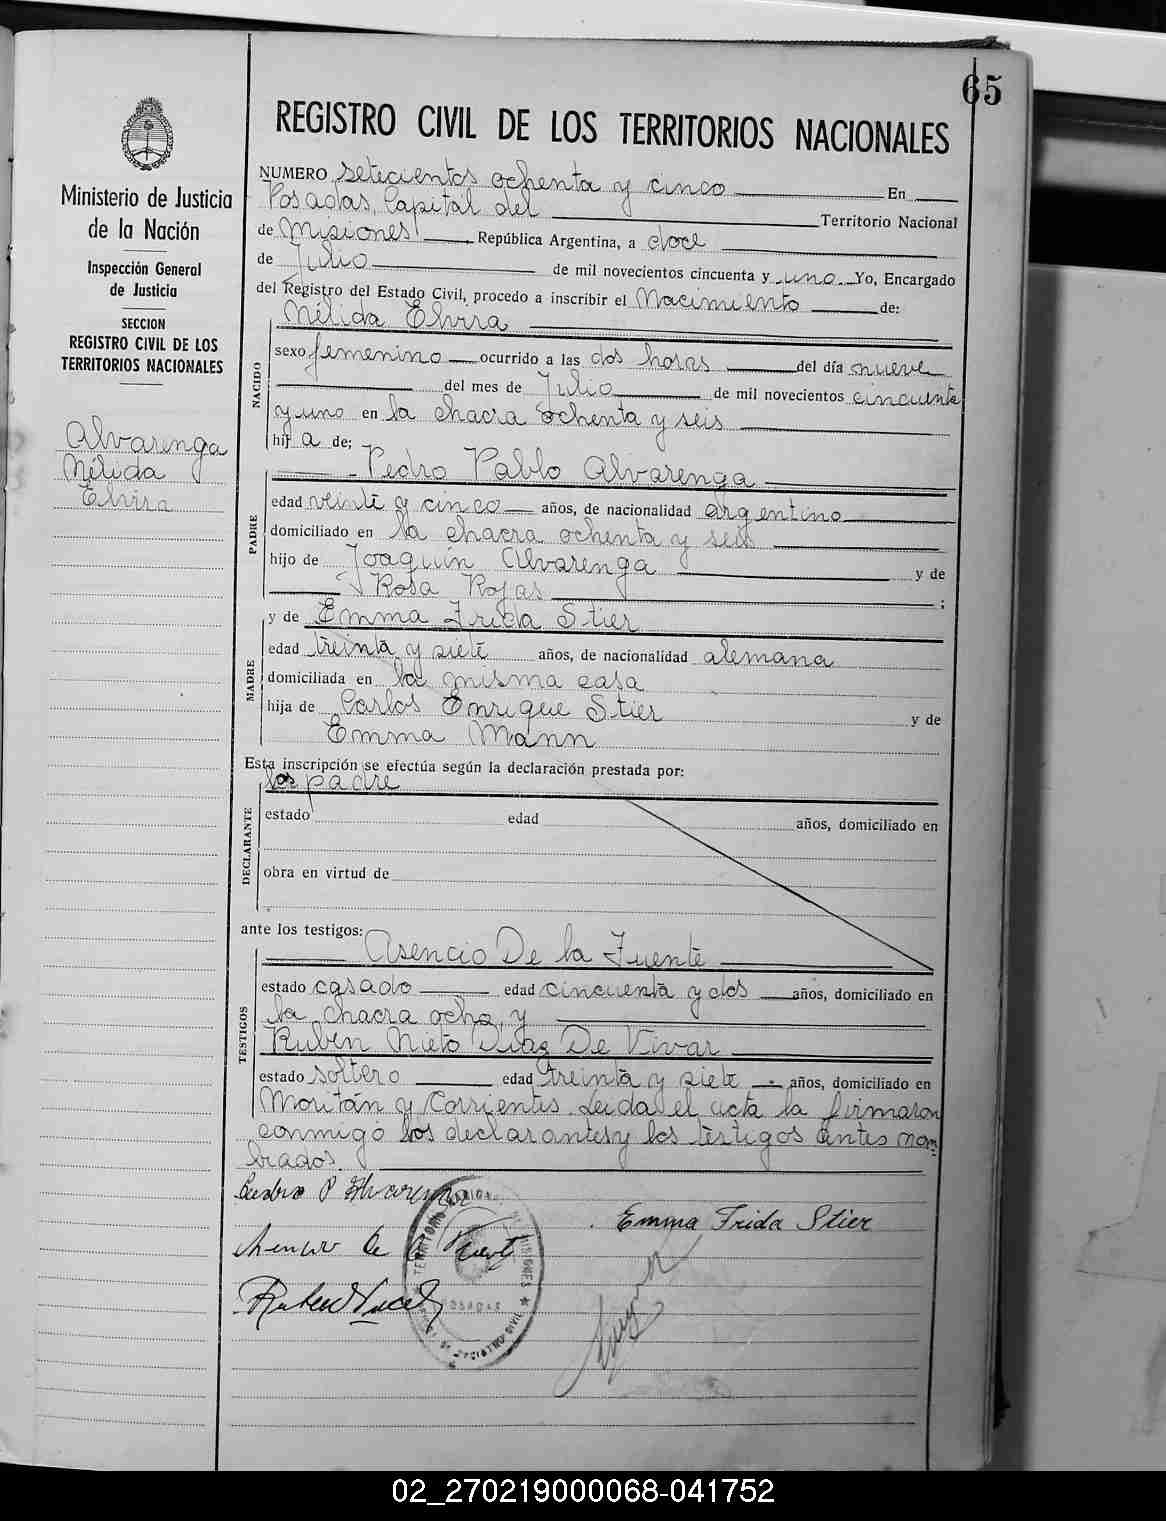 65
REGISTRO CIVIL DE LOS TERRITORIOS NACIONALES
Ministerio de Justicia
de la Nación
Inspección General
de Justicia
SECCION
REGISTRO CIVIL DE LOS
TERRITORIOS NACIONALES
Alvarenga
Nélida
Elvira
NUMERO setecientos ochenta y cinco En
Posadas, Capital del Territorio Nacional
de Misiones República Argentina, a doce
de Julio de mil novecientos cincuenta y uno. Yo, Encargado
del Registro del Estado Civil, procedo a inscribir el Nacimiento de:
Nélida Elvira
NACIDO
sexo femenino ocurrido a las dos horas del día nueve
del mes de Julio de mil novecientos cincuenta
y uno en la chacra ochenta y seis
hij a de;
Pedro Pablo Alvarenga
PADRE
edad veinte y cinco años, de nacionalidad argentino
domiciliado en la chacra ochenta y seis
hijo de Joaquín Alvarenga y de
Rosa Rojas ;
y de Emma Frida Stier
MADRE
edad treinta y siete años, de nacionalidad alemana
domiciliada en la misma casa
hija de Carlos Enrique Stier y de
Emma Mann
Esta inscripción se efectúa según la declaración prestada por:
los padre
DECLARANTE
estado edad años, domiciliado en
obra en virtud de
ante los testigos:
Asencio De la Fuente
TESTIGOS
estado casado edad cincuenta y dos años, domiciliado en
la chacra ocho, y
Rubén Nieto Diaz De Vivar
estado soltero edad treinta y siete años, domiciliado en
Moritán y Corrientes. Leida el acta la firmaron
conmigo los declarantes y los testigos antes nom-
brados.
Pedro P Alvarenga
Emma Frida Stier
Asencio de la Fuente
TERRITORIO NACIONAL DE MISIONES
POSADAS
REGISTRO CIVIL
02_270219000068-041752